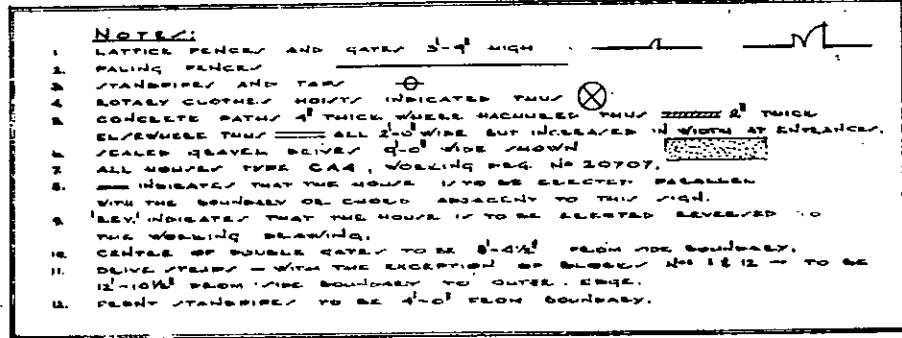 NOTES:
1. LATTICE FENCES AND GATES 3'-9" HIGH
2. PALING FENCES
3. STANDPIPES AND TAPS
4. ROTARY CLOTHES HOISTS INDICATED THUS
5. CONCRETE PATHS 4" THICK WHERE HACHURED THUS 2" THICK
ELSEWHERE THUS ALL 2'-0" WIDE BUT INCREASED IN WIDTH AT ENTRANCES.
6. SEALED GRAVEL DRIVES 9'-0" WIDE SHOWN
7. ALL HOUSES TYPE CA4, WORKING DRG. No 20707.
8. INDICATES THAT THE HOUSE IS TO BE ERECTED PARALLEL
WITH THE BOUNDARY OR CHORD ADJACENT TO THIS SIGN.
9. 'REV.' INDICATES THAT THE HOUSE IS TO BE ERECTED REVERSED TO
THE WORKING DRAWING.
10. CENTER OF DOUBLE GATES TO BE 8'-4½" FROM SIDE BOUNDARY.
11. DRIVE STRIPS – WITH THE EXCEPTION OF BLOCKS Nos 1 & 12 – TO BE
12'-10½" FROM SIDE BOUNDARY TO OUTER EDGE.
12. FRONT STANDPIPES TO BE 4'-0" FROM BOUNDARY.